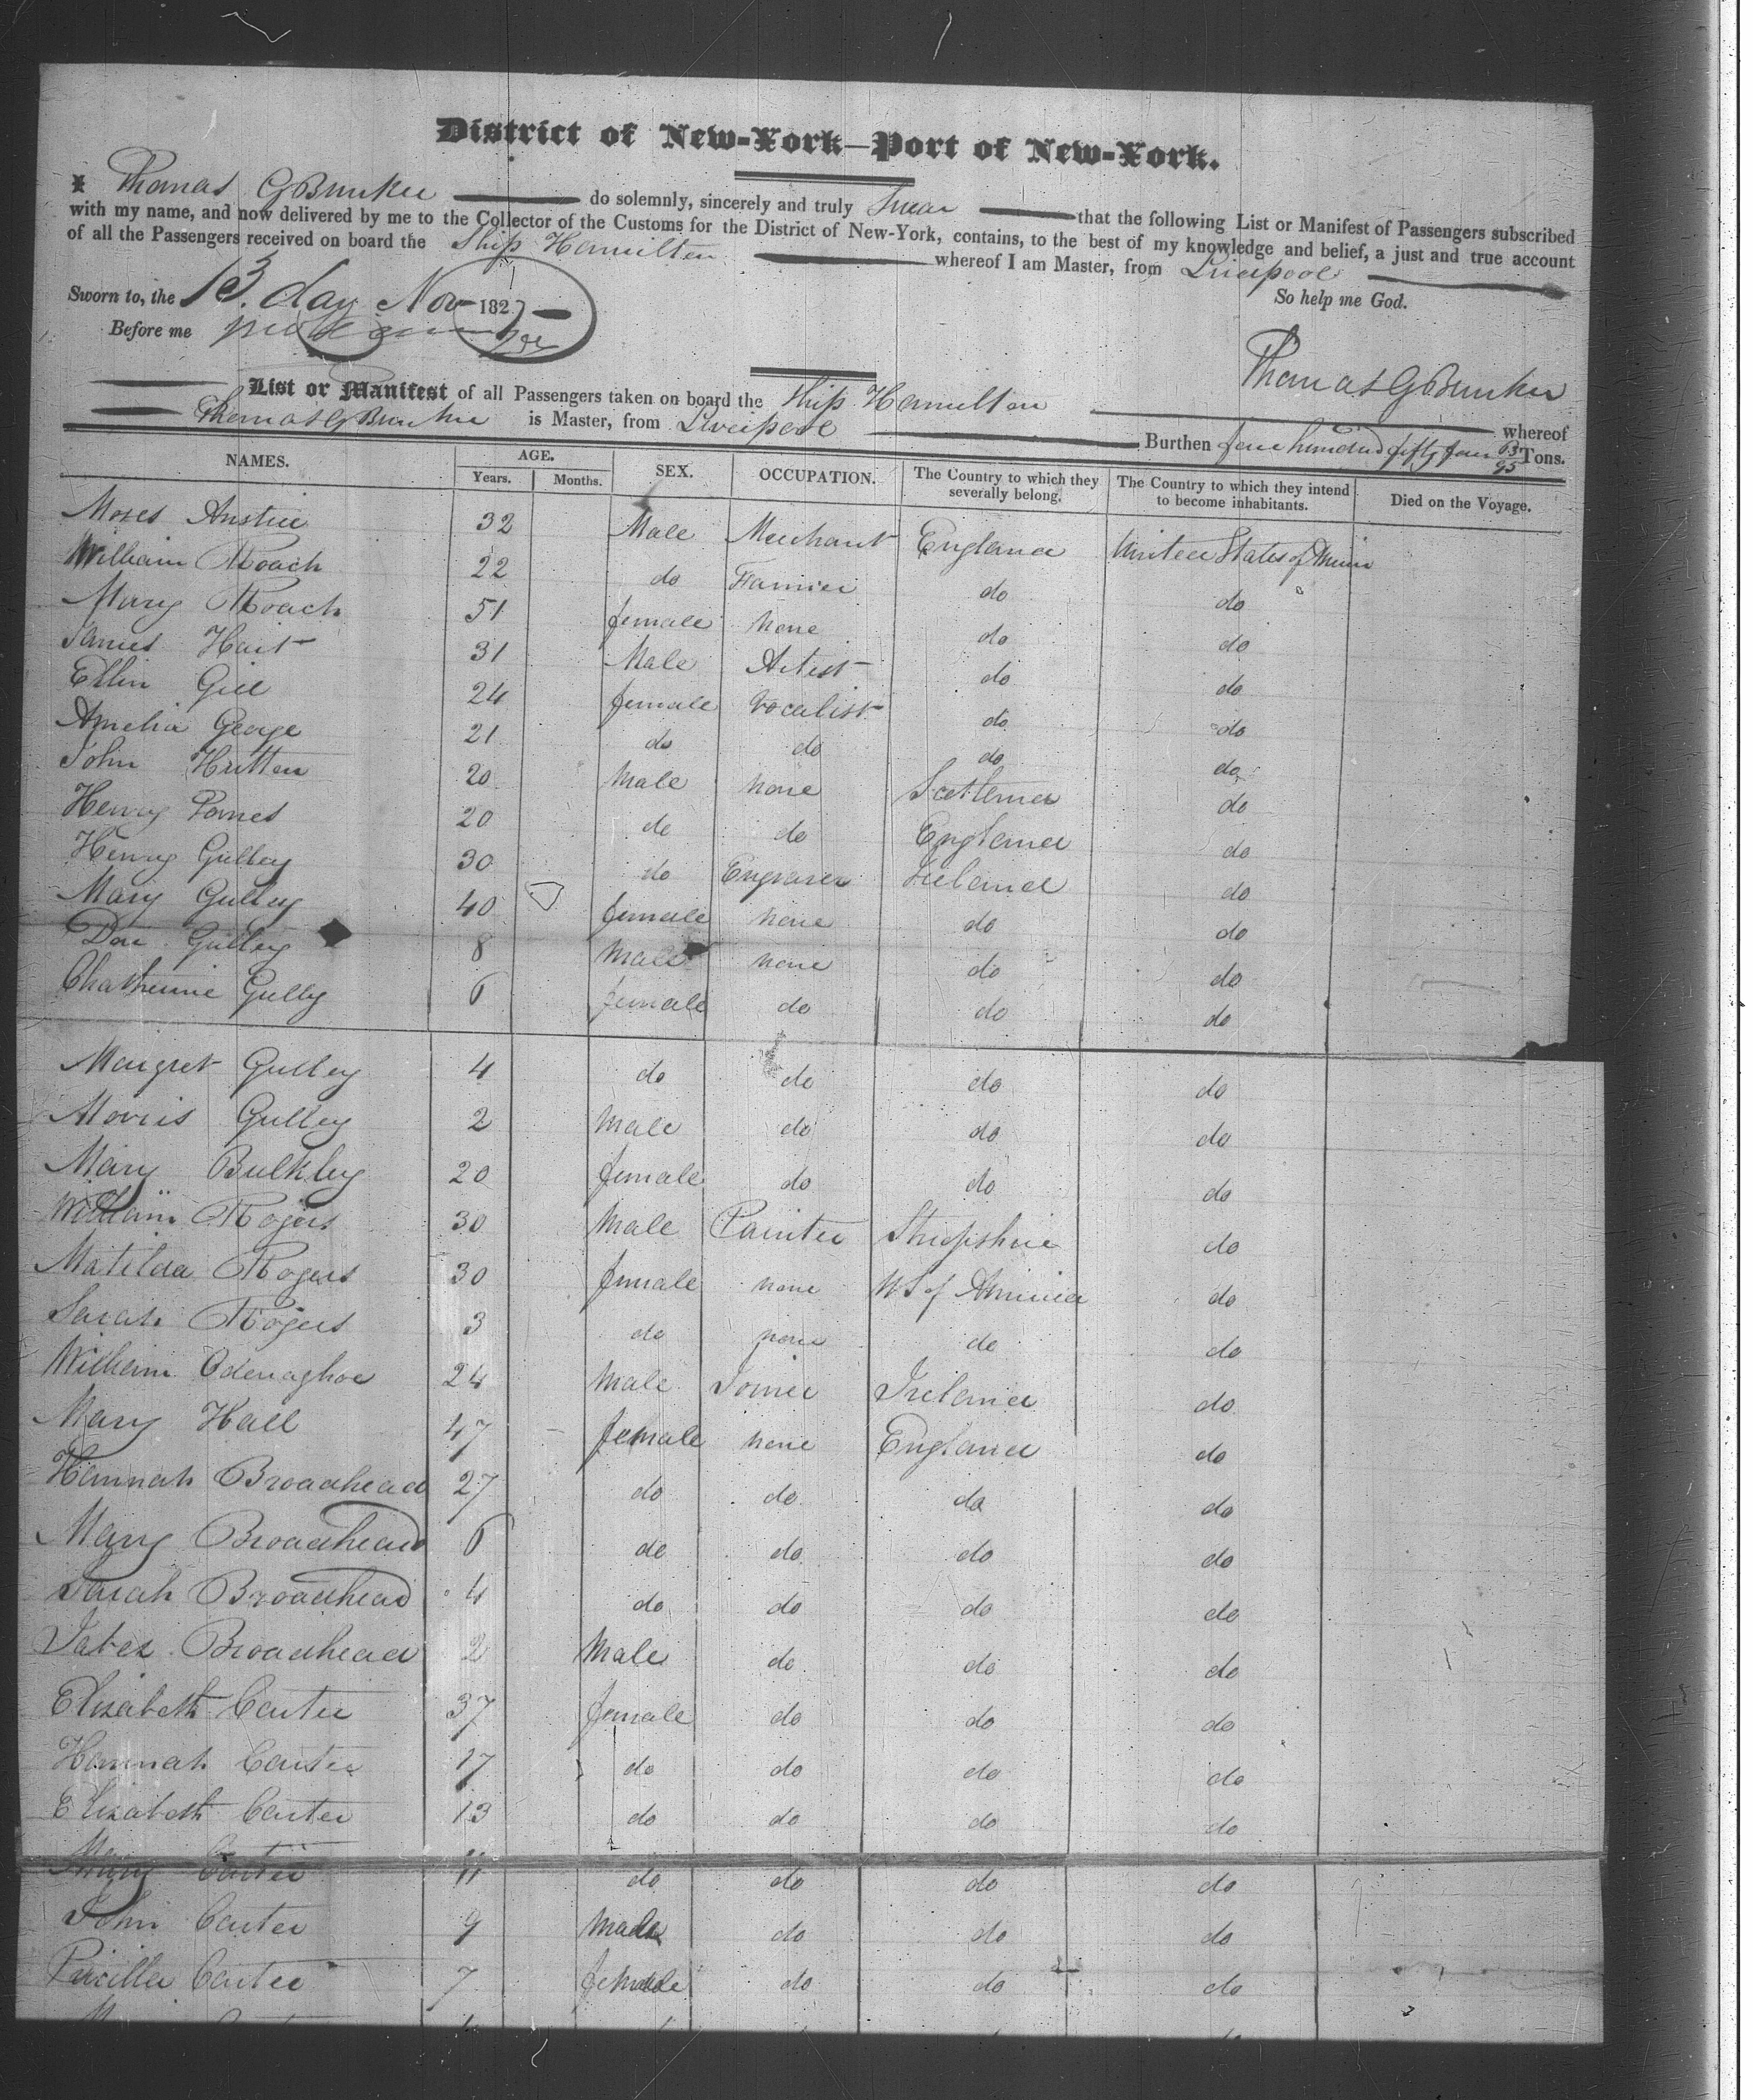 District of New-York—Port of New-York.
I Thomas G Bunker do solemnly, sincerely and truly Swear that the following List or Manifest of Passengers subscribed
with my name, and now delivered by me to the Collector of the Customs for the District of New-York, contains, to the best of my knowledge and belief, a just and true account
of all the Passengers received on board the Ship Hamilton whereof I am Master, from Liverpool
So help me God.
Sworn to, the 13 day Nov 1827
Before me
Thomas G Bunker
List or Manifest of all Passengers taken on board the Ship Hamilton whereof
Thomas G Bunker is Master, from Liverpool Burthen four hundred fifty four 63/95 Tons.
NAMES. AGE. Years. Months. SEX. OCCUPATION. The Country to which they severally belong. The Country to which they intend to become inhabitants. Died on the Voyage.
Moses Austin 32 Male Merchant England United States of
William Roach 22 do Farmer do do
Mary Roach 51 female none do do
James Hart 31 Male Artist do do
Ellin Gill 24 female Vocalist do do
Amelia George 21 do do do do
John Hutten 20 Male none Scotland do
Henry 20 do do England do
Henry Gulley 30 do Engraver Ireland do
Mary Gulley 40 female none do do
Gulley 8 Male none do do
Chatherine Gully 6 female do do do
Margret Gulley 4 do do do do
Morris Gulley 2 Male do do do
Mary Bulkley 20 female do do do
William Rogers 30 Male Painter Shropshire do
Matilda Rogers 30 female none US of America do
Sarah Rogers 3 do none do do
William Odenaghoe 24 Male Joiner Ireland do
Mary Hall 47 female none England do
Hannah Broadhead 27 do do do do
Mary Broadhead 6 do do do do
Sarah Broadhead 4 do do do do
Jabez Broadhead 2 Male do do do
Elizabeth Carter 37 female do do do
Hannah Carter 17 do do do do
Elizabeth Carter 13 do do do do
Mary Carter 11 do do do do
John Carter 9 Male do do do
Pricilla Carter 7 female do do do